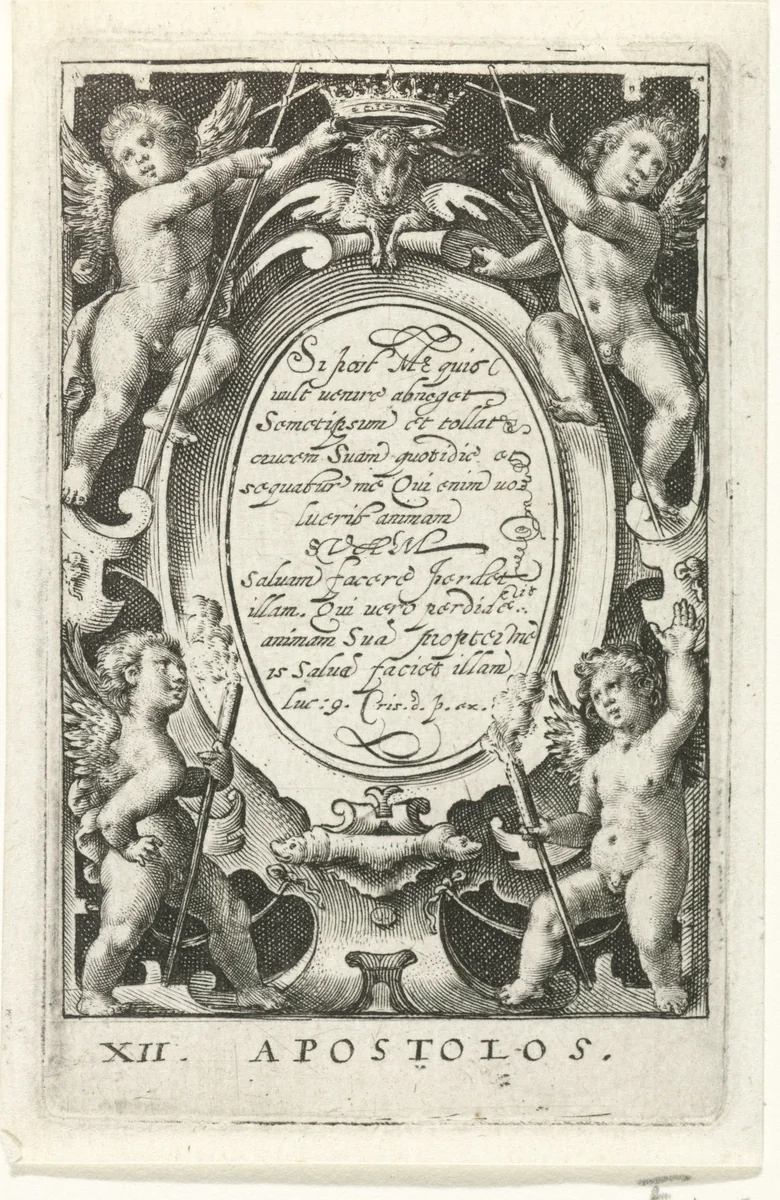 Si post ME quis
vult venire abneget
Semetipsum et tollat
crucem Suam quotidie et
sequatur me Qui enim vo
luerit animam
SVAM
Salvam facere perdet
illam. Qui vero perdide
rit
animam Suā propter me
is Salvā faciet illam
Luc: 9. Cris. d. p. ex.
XII. APOSTOLOS.